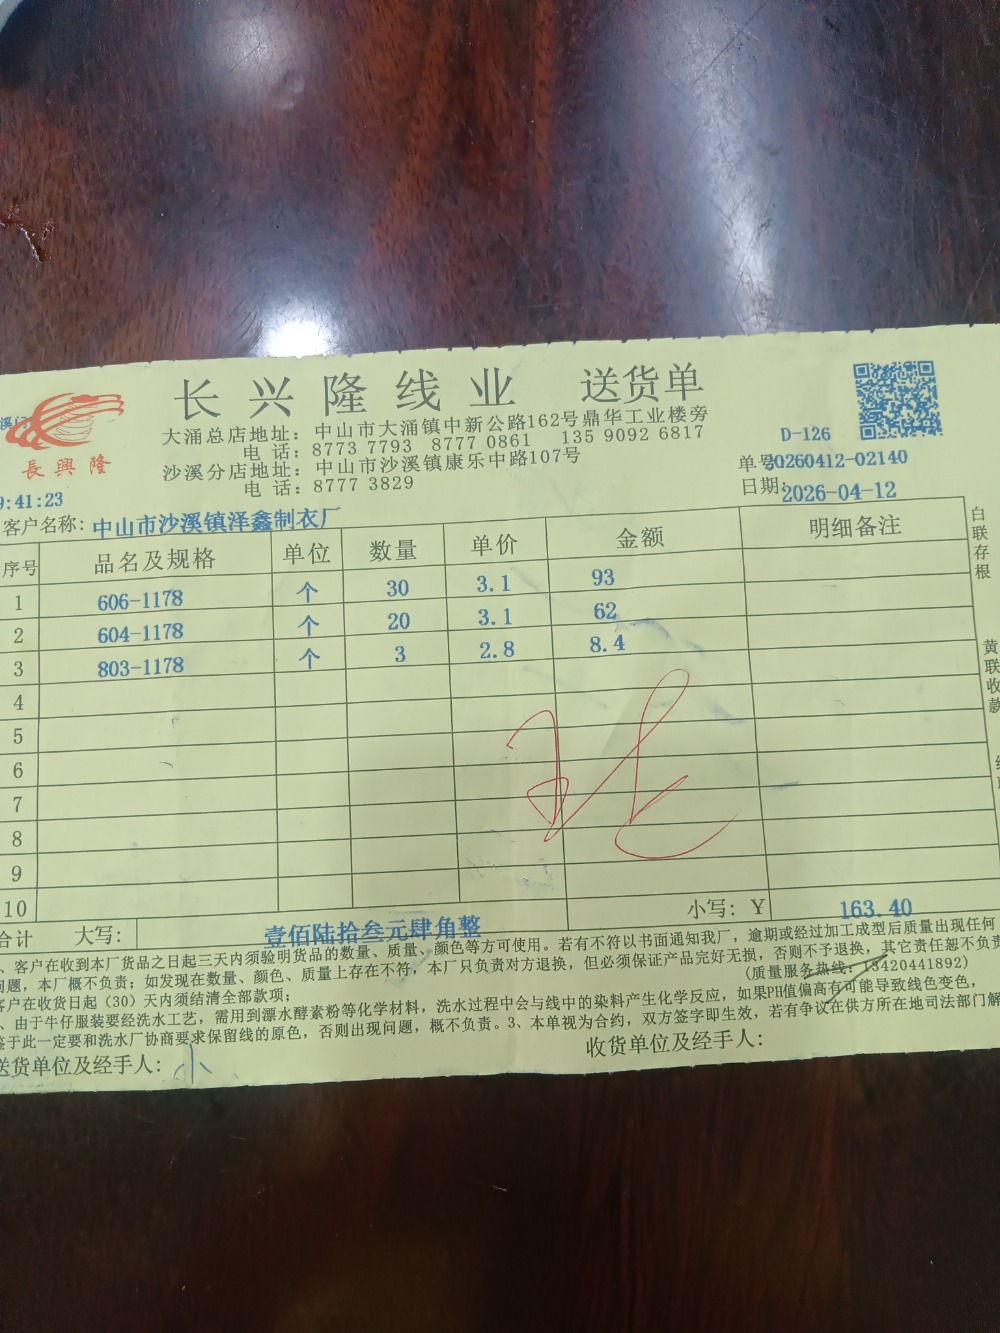 长兴隆线业 送货单
大涌总店地址: 中山市大涌镇中新公路162号鼎华工业楼旁
电 话: 8773 7793 8777 0861 135 9092 6817
沙溪分店地址: 中山市沙溪镇康乐中路107号
电 话: 8777 3829
長興隆
D-126
单号 20260412-02140
日期: 2026-04-12
9:41:23
客户名称: 中山市沙溪镇泽鑫制衣厂
序号 品名及规格 单位 数量 单价 金额 明细备注
1 606-1178 个 30 3.1 93
2 604-1178 个 20 3.1 62
3 803-1178 个 3 2.8 8.4
4
5
6
7
8
9
10
合计 大写: 壹佰陆拾叁元肆角整 小写: Y 163.40
白联存根
黄联收款
、客户在收到本厂货品之日起三天内须验明货品的数量、质量、颜色等方可使用。若有不符以书面通知我厂，逾期或经过加工成型后质量出现任何
问题，本厂概不负责；如发现在数量、颜色、质量上存在不符，本厂只负责对方退换，但必须保证产品完好无损，否则不予退换，其它责任恕不负责
(质量服务热线: 13420441892)
客户在收货日起（30）天内须结清全部款项；
、由于牛仔服装要经洗水工艺，需用到漂水酵素粉等化学材料，洗水过程中会与线中的染料产生化学反应，如果PH值偏高有可能导致线色变色，
鉴于此一定要和洗水厂协商要求保留线的原色，否则出现问题，概不负责。3、本单视为合约，双方签字即生效，若有争议在供方所在地司法部门解
送货单位及经手人: 小
收货单位及经手人: